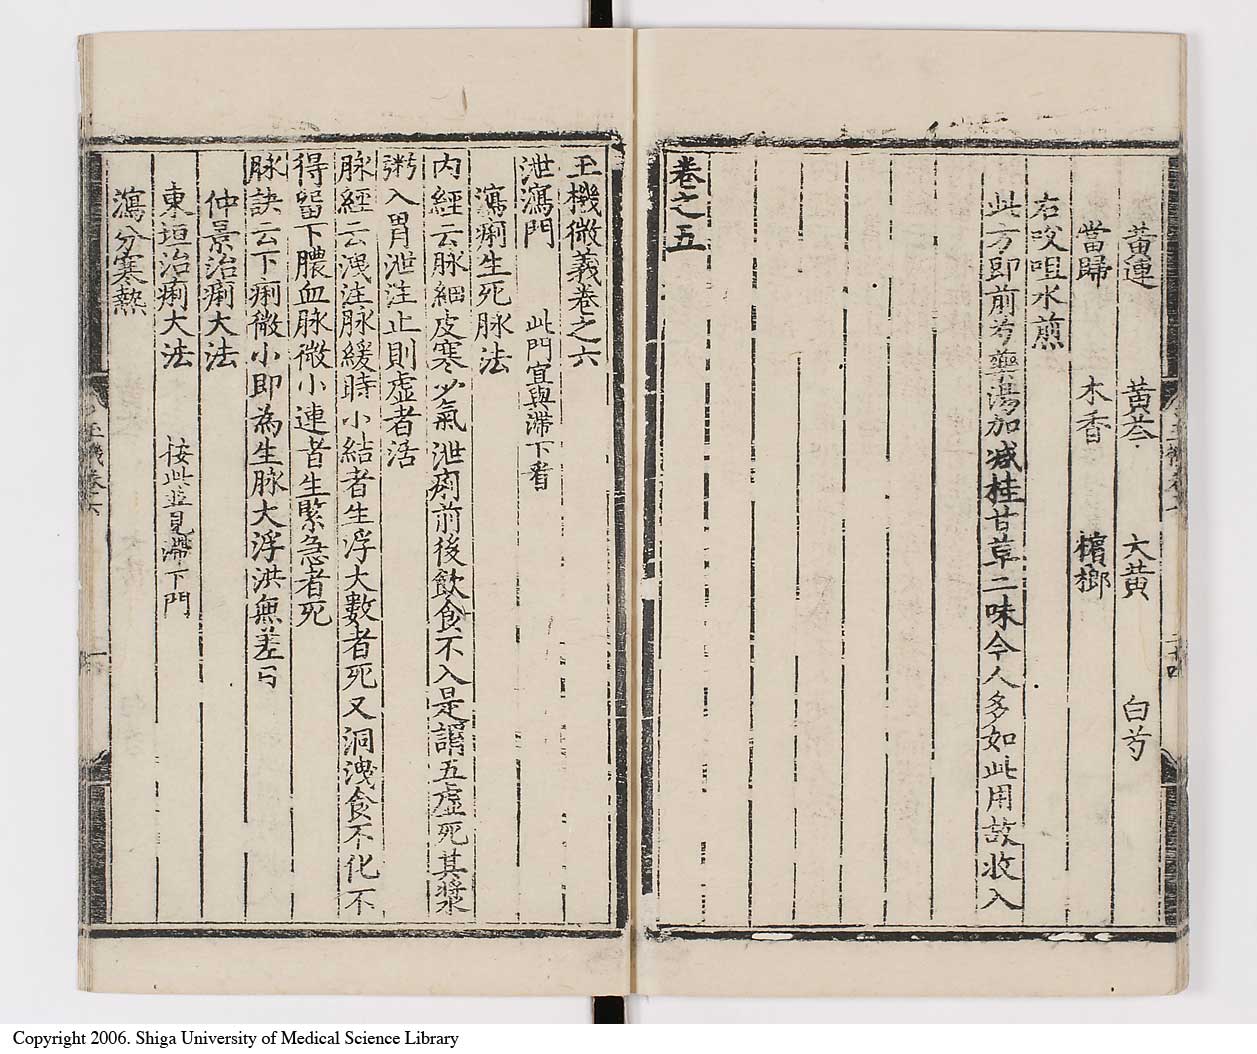 黃連 黃芩 大黃 白芍
當歸 木香 檳榔
右㕮咀水煎
此方即前芍藥湯加减桂甘草二味今人多如此用故收入
卷之五
玉機微義卷之六
泄瀉門 此門宜與滯下看
瀉痢生死脉法
內經云脉細皮寒少氣泄痢前後飲食不入是謂五虛死其漿
粥入胃泄注止則虛者活
脉經云洩注脉緩時小結者生浮大數者死又洞洩食不化不
得留下膿血脉微小連者生緊急者死
脉訣云下痢微小即為生脉大浮洪無差日
仲景治痢大法
東垣治痢大法 按此並見滯下門
瀉分寒熱
玉機卷六 一
Copyright 2006. Shiga University of Medical Science Library